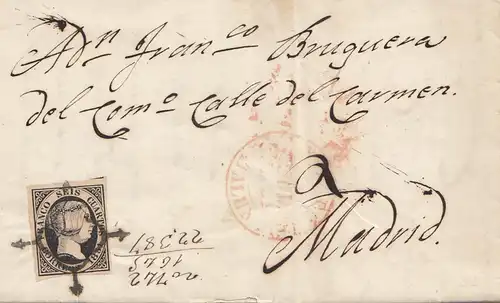 Adn Franco Bruguera
del Como Calle del Carmen.
a
Madrid.
FRANCO SEIS CUARTOS